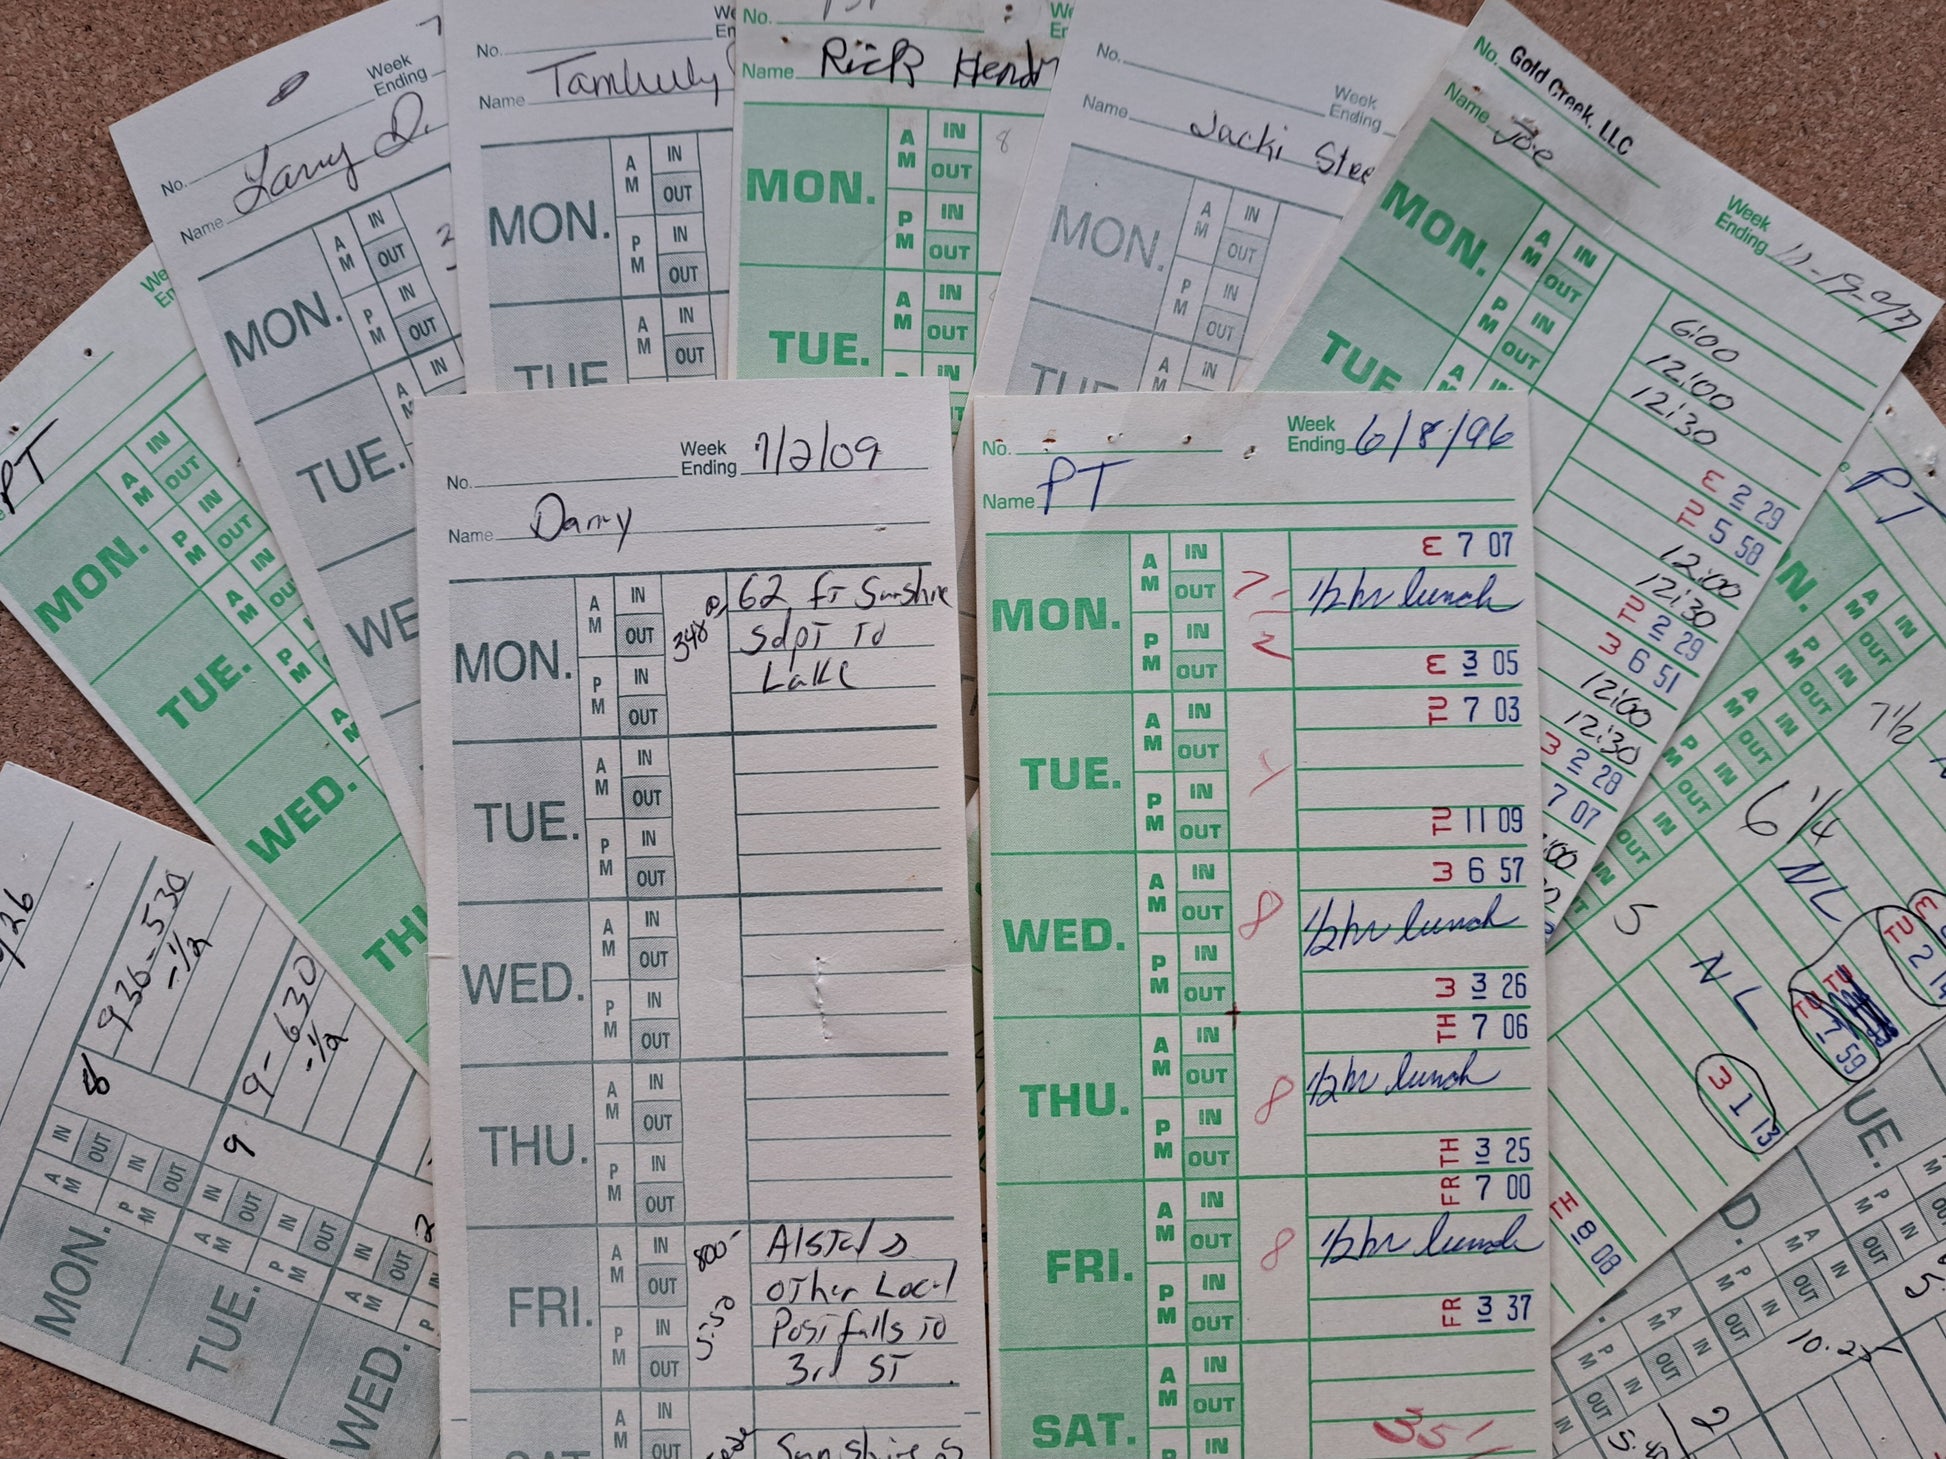 No.
Week
Ending
Name Larry D.
MON.
AM
IN
OUT
PM
IN
OUT
TUE.
WE
No.
Name Tamberly
MON.
AM
IN
OUT
PM
IN
OUT
TUE
AM
IN
OUT
No.
Name Rick Hend
MON.
AM
IN
OUT
PM
IN
OUT
8
TUE.
AM
IN
OUT
IN
No.
Week
Ending
Name Jacki Stee
MON.
AM
IN
OUT
PM
IN
OUT
TUE
AM
IN
No. Gold Creek, LLC
Name Joe
Week
Ending
MON.
AM
IN
OUT
PM
IN
OUT
TUE
6:00
12:00
12:30
E 2 29
TU 5 58
12:00
12:30
TU 2 29
3 6 51
12:00
12:30
3 2 28
7 07
PT
MON.
AM
IN
OUT
PM
IN
OUT
TUE.
WED.
THU
No.
Week
Ending 7/2/09
Name Darry
MON.
AM
IN
OUT
PM
IN
OUT
348 @
62 ft Sunshine
Sdpt to
Lake
TUE.
AM
IN
OUT
PM
IN
OUT
WED.
AM
IN
OUT
PM
IN
OUT
THU.
AM
IN
OUT
PM
IN
OUT
FRI.
AM
IN
OUT
PM
IN
OUT
800-
5:50
Other Local
Postfalls to
3rd ST
AM
IN
OUT
No.
Week
Ending 6/8/96
Name PT
MON.
AM
IN
OUT
PM
IN
OUT
E 7 07
1/2 hr lunch
E 3 05
TUE.
AM
IN
OUT
PM
IN
OUT
TU 7 03
TU 11 09
WED.
AM
IN
OUT
PM
IN
OUT
8
3 6 57
1/2 hr lunch
3 3 26
THU.
AM
IN
OUT
PM
IN
OUT
8
TH 7 06
1/2 hr lunch
TH 3 25
FRI.
AM
IN
OUT
PM
IN
OUT
8
FR 7 00
1/2 hr lunch
FR 3 37
SAT.
AM
IN
OUT
P
IN
PT
7 1/2
6 1/4
NL
5
NL
TU 7 59
3 1 13
TH 8 08
8
930-530
-1/2
9
9-630
-1/2
MON.
AM
IN
OUT
PM
IN
OUT
TUE.
AM
IN
OUT
PM
IN
OUT
WED.
AM
IN
OUT
UE.
D.
10.25
2